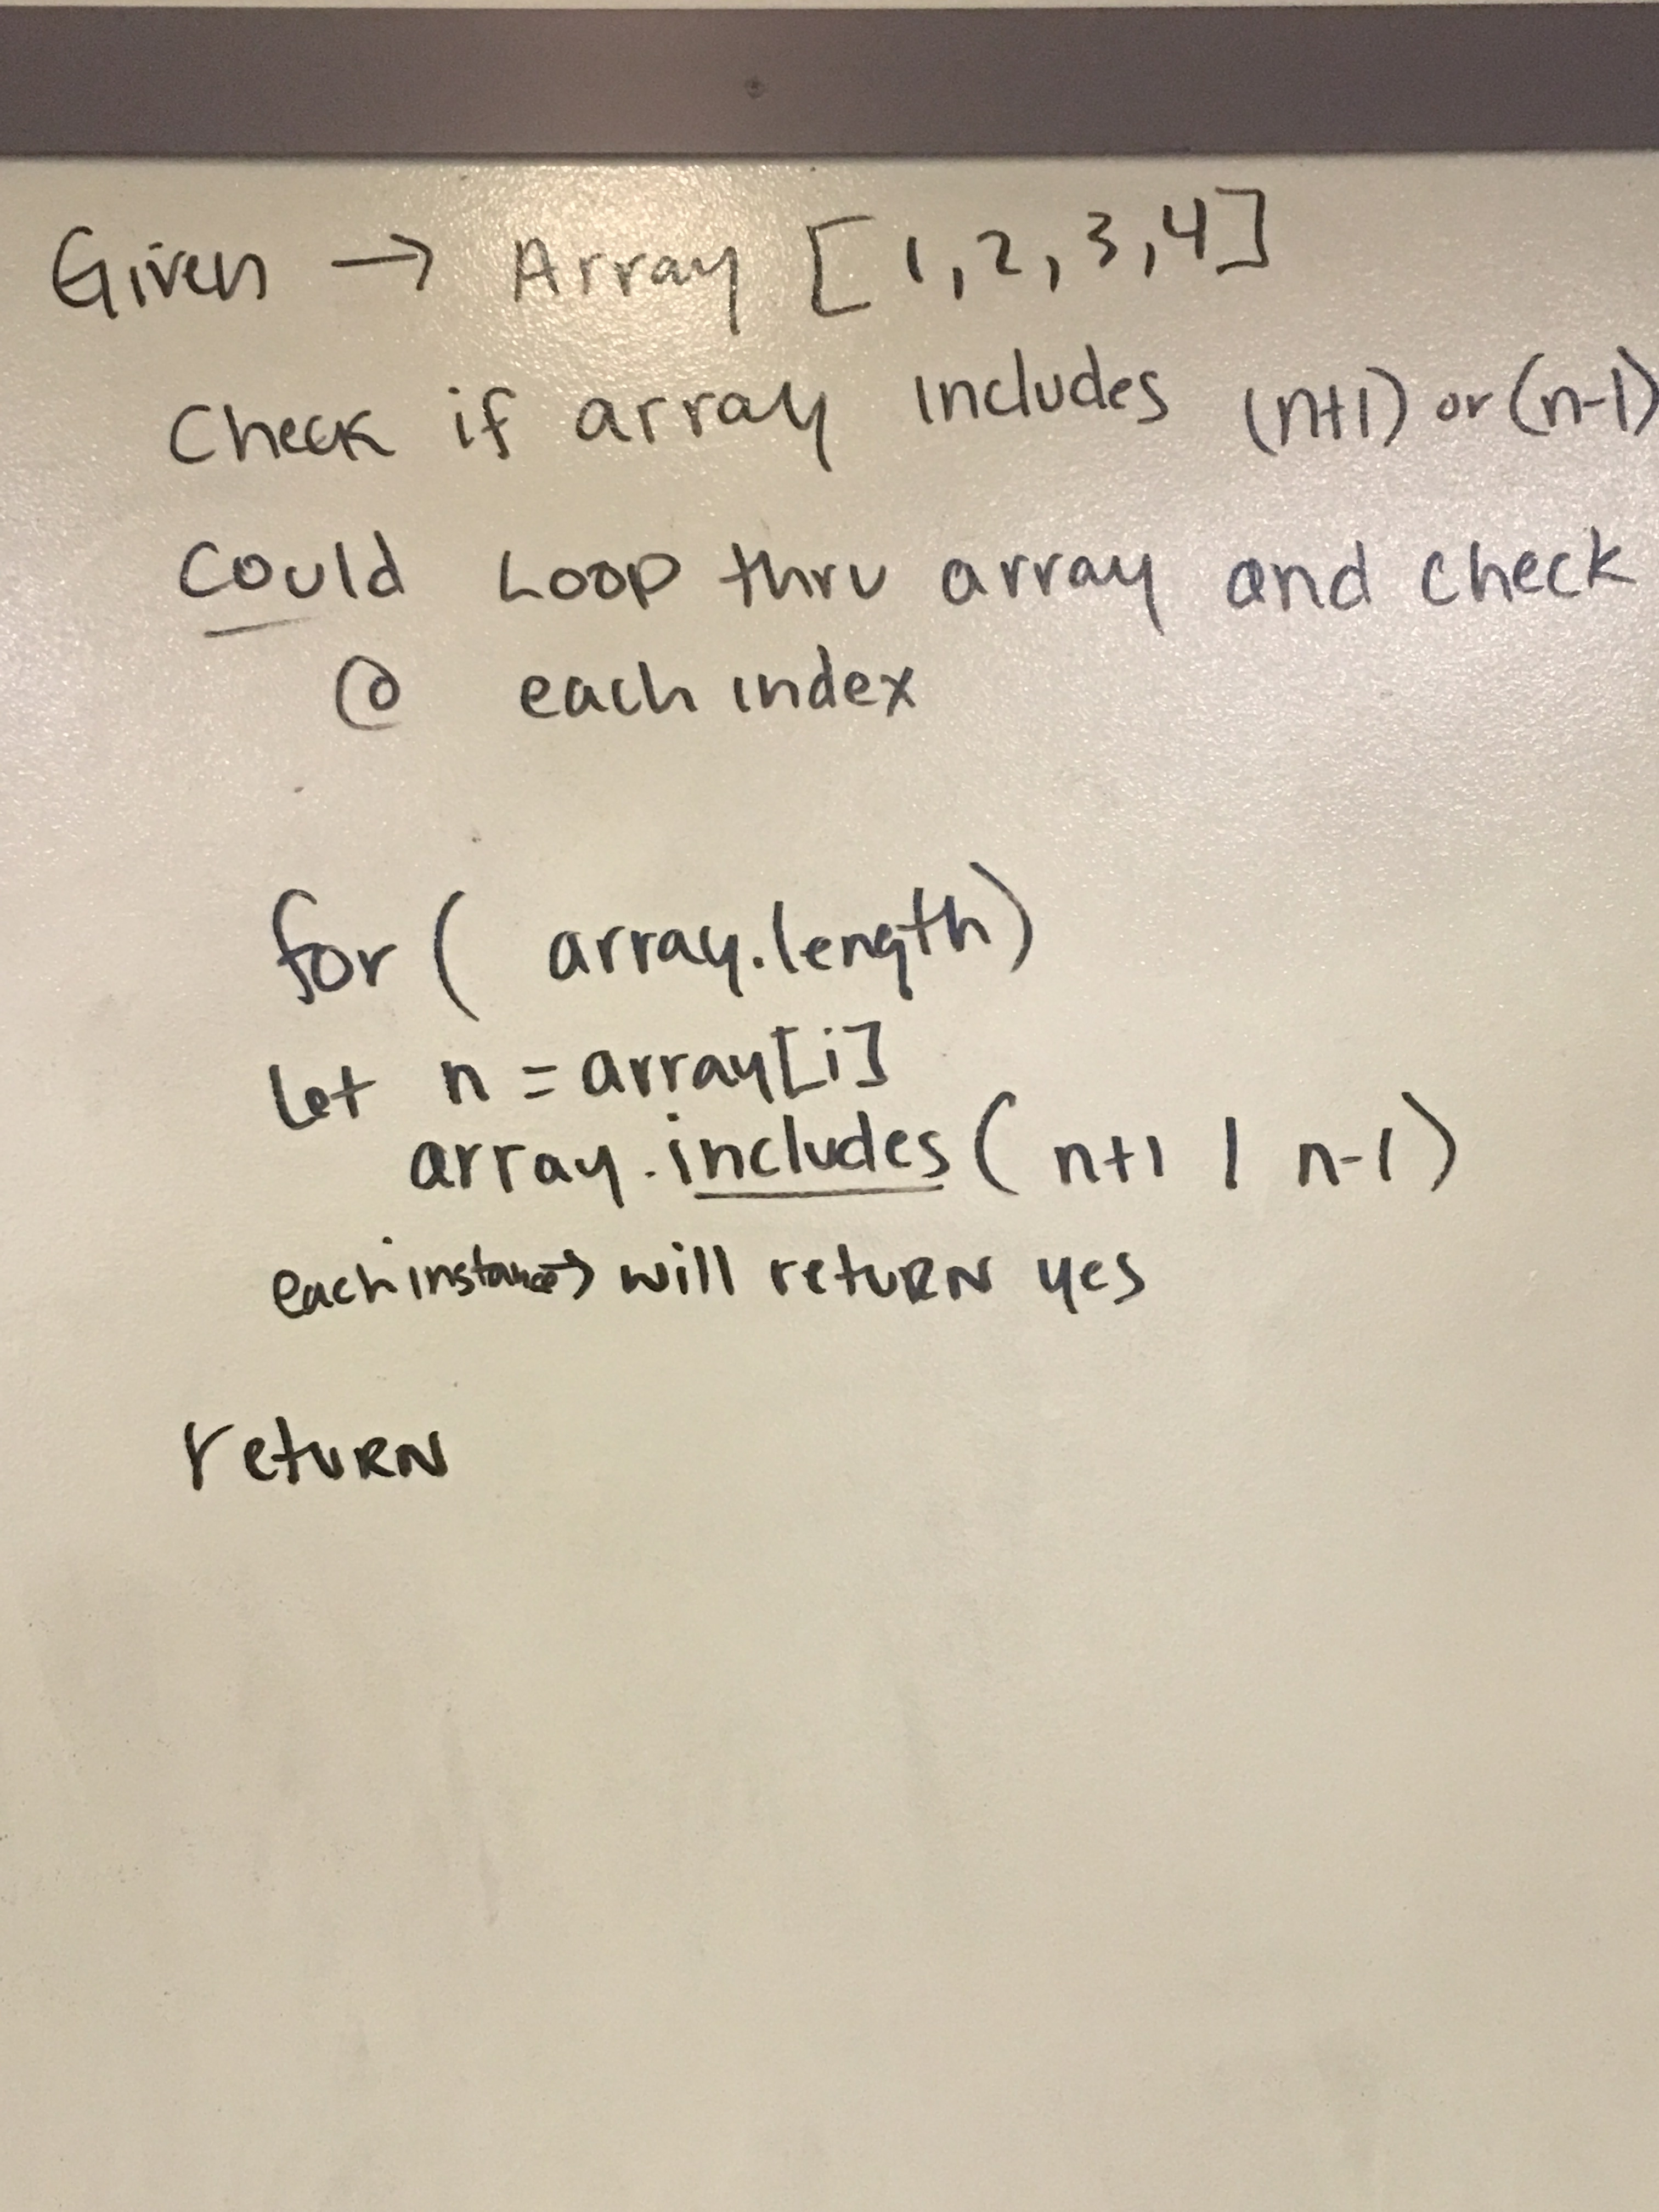 Given → Array [1,2,3,4]
Check if array includes (n+1) or (n-1)
Could Loop thru array and check
@ each index
for ( array.length)
let n = array[i]
array.includes ( n+1 | n-1 )
each instance → will return yes
return